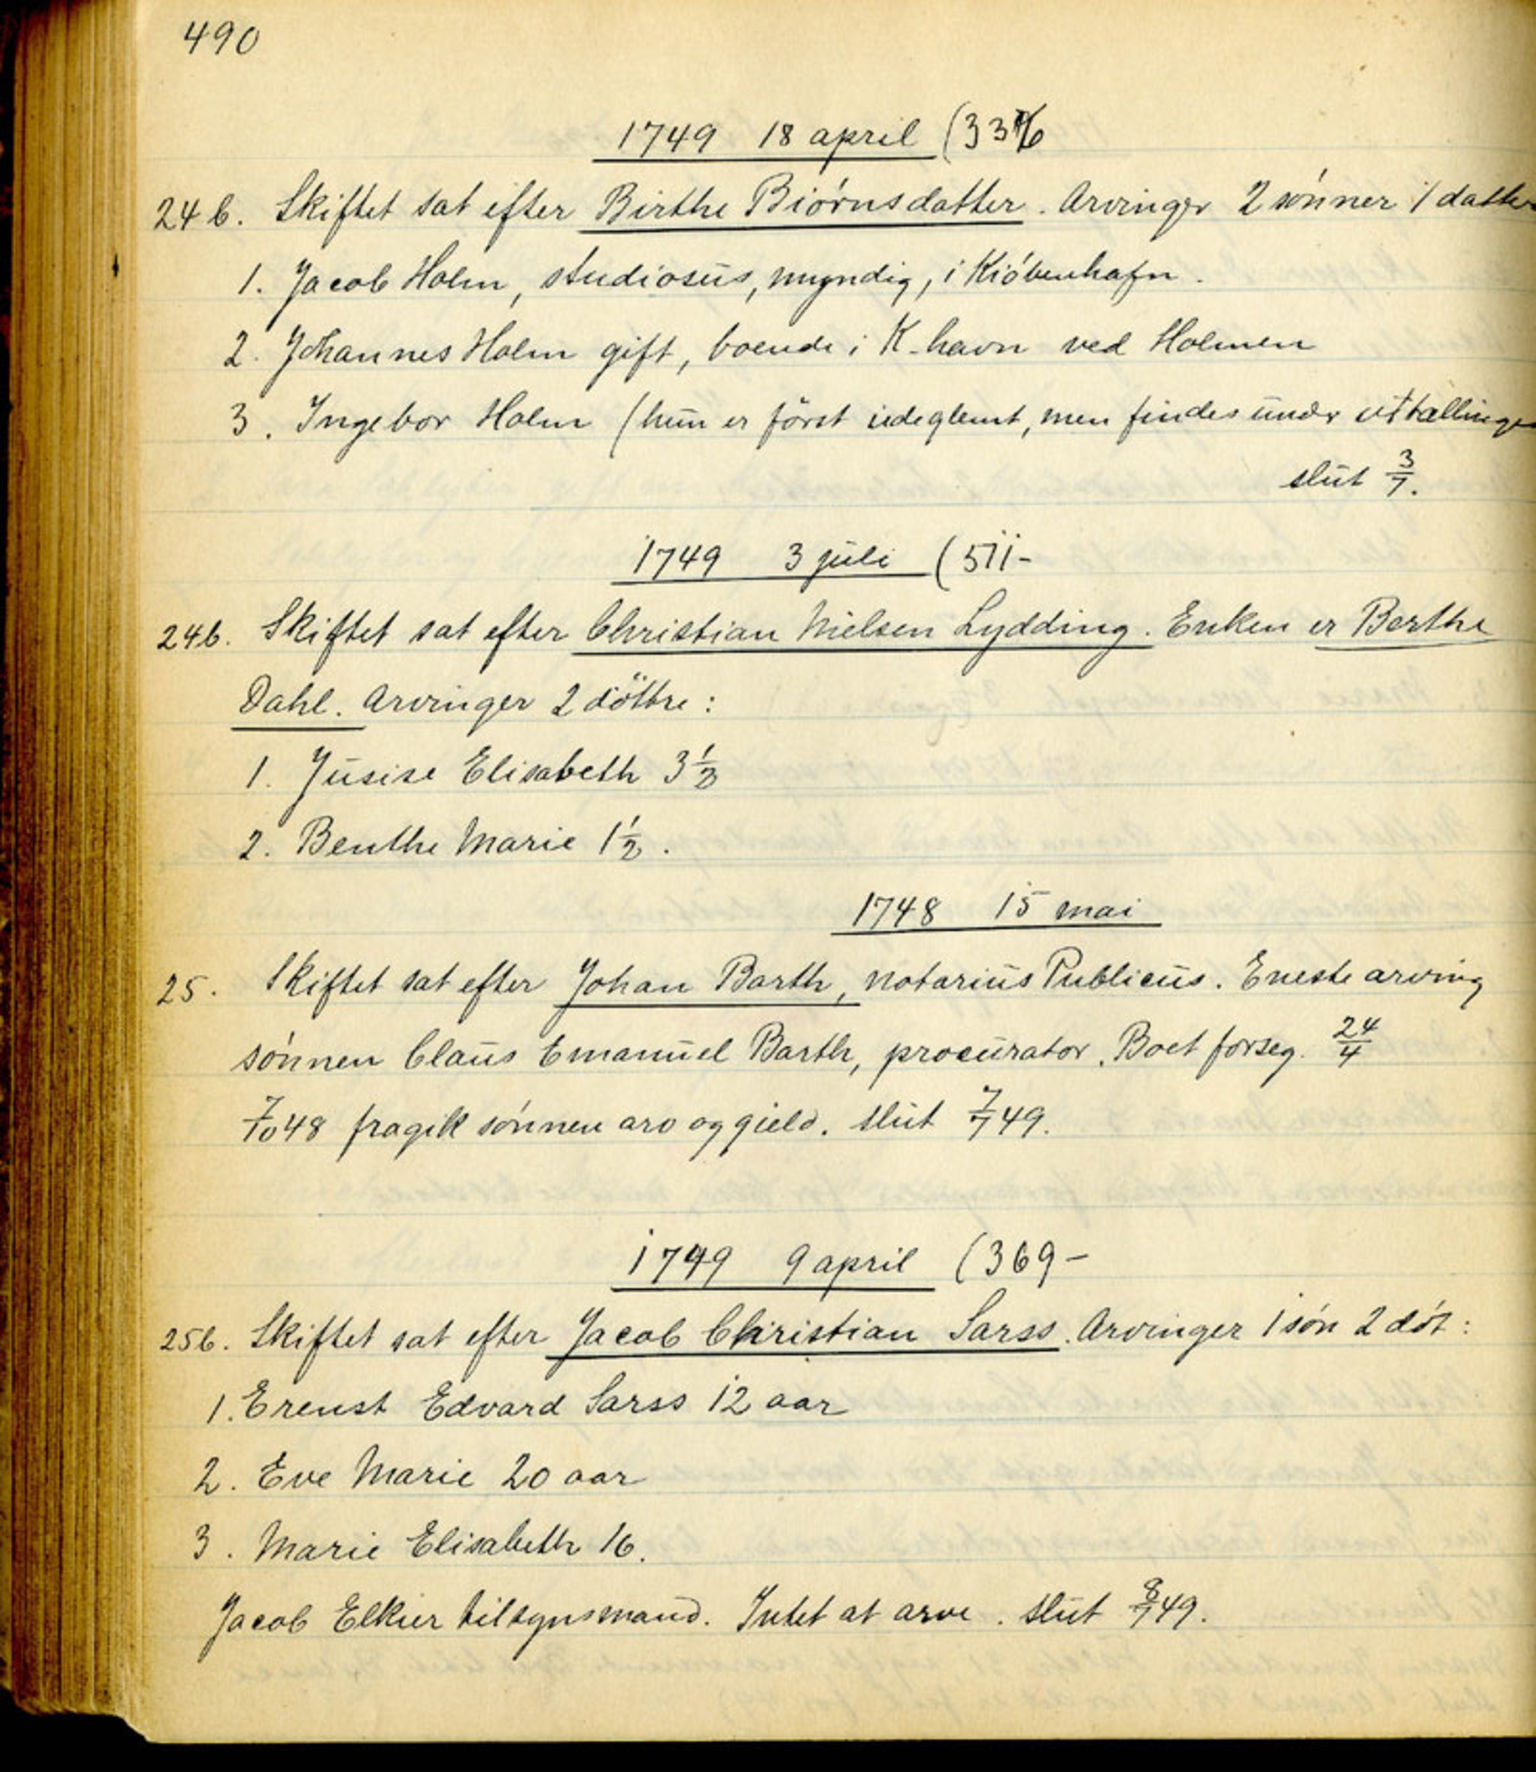 490
1749 18 april (336
24 b. Skiftet sat efter Birthe Biórnsdatter. Arvinger 2 sónner 1 datter
1. Jacob Holm, studiosus, myndig, i Kióbenhafn.
2. Johannes Holm gift, boende i K-havn ved Holmen
3. Ingebor Holm (hun er först udeglemt, men findes under uttællingen
slut 3/7.
1749 3 juli (511-
24b. Skiftet sat efter Christian Nielsen Lydding. Enken er Berthe
Dahl. Arvinger 2 döttre:
1. Jusise Elisabeth 3 1/2
2. Benthe Marie 1 1/2.
1748 15 mai
25. Skiftet sat efter Johan Barth, notarius Publicus. Eneste arving
sónnen Claus Emanuel Barth, procurator. Boet forseg. 24/4
7/10 48 fragik sónnen arv og gield. slut 7/7 49.
1749 9 april (369-
25b. Skiftet sat efter Jacob Christian Sarss. Arvinger 1 són 2 dót:
1. Erenst Edvard Sarss 12 aar
2. Eve Marie 20 aar
3. Marie Elisabeth 16.
Jacob Elkier tilsynsmand. Intet at arve. slut 8/7 49.